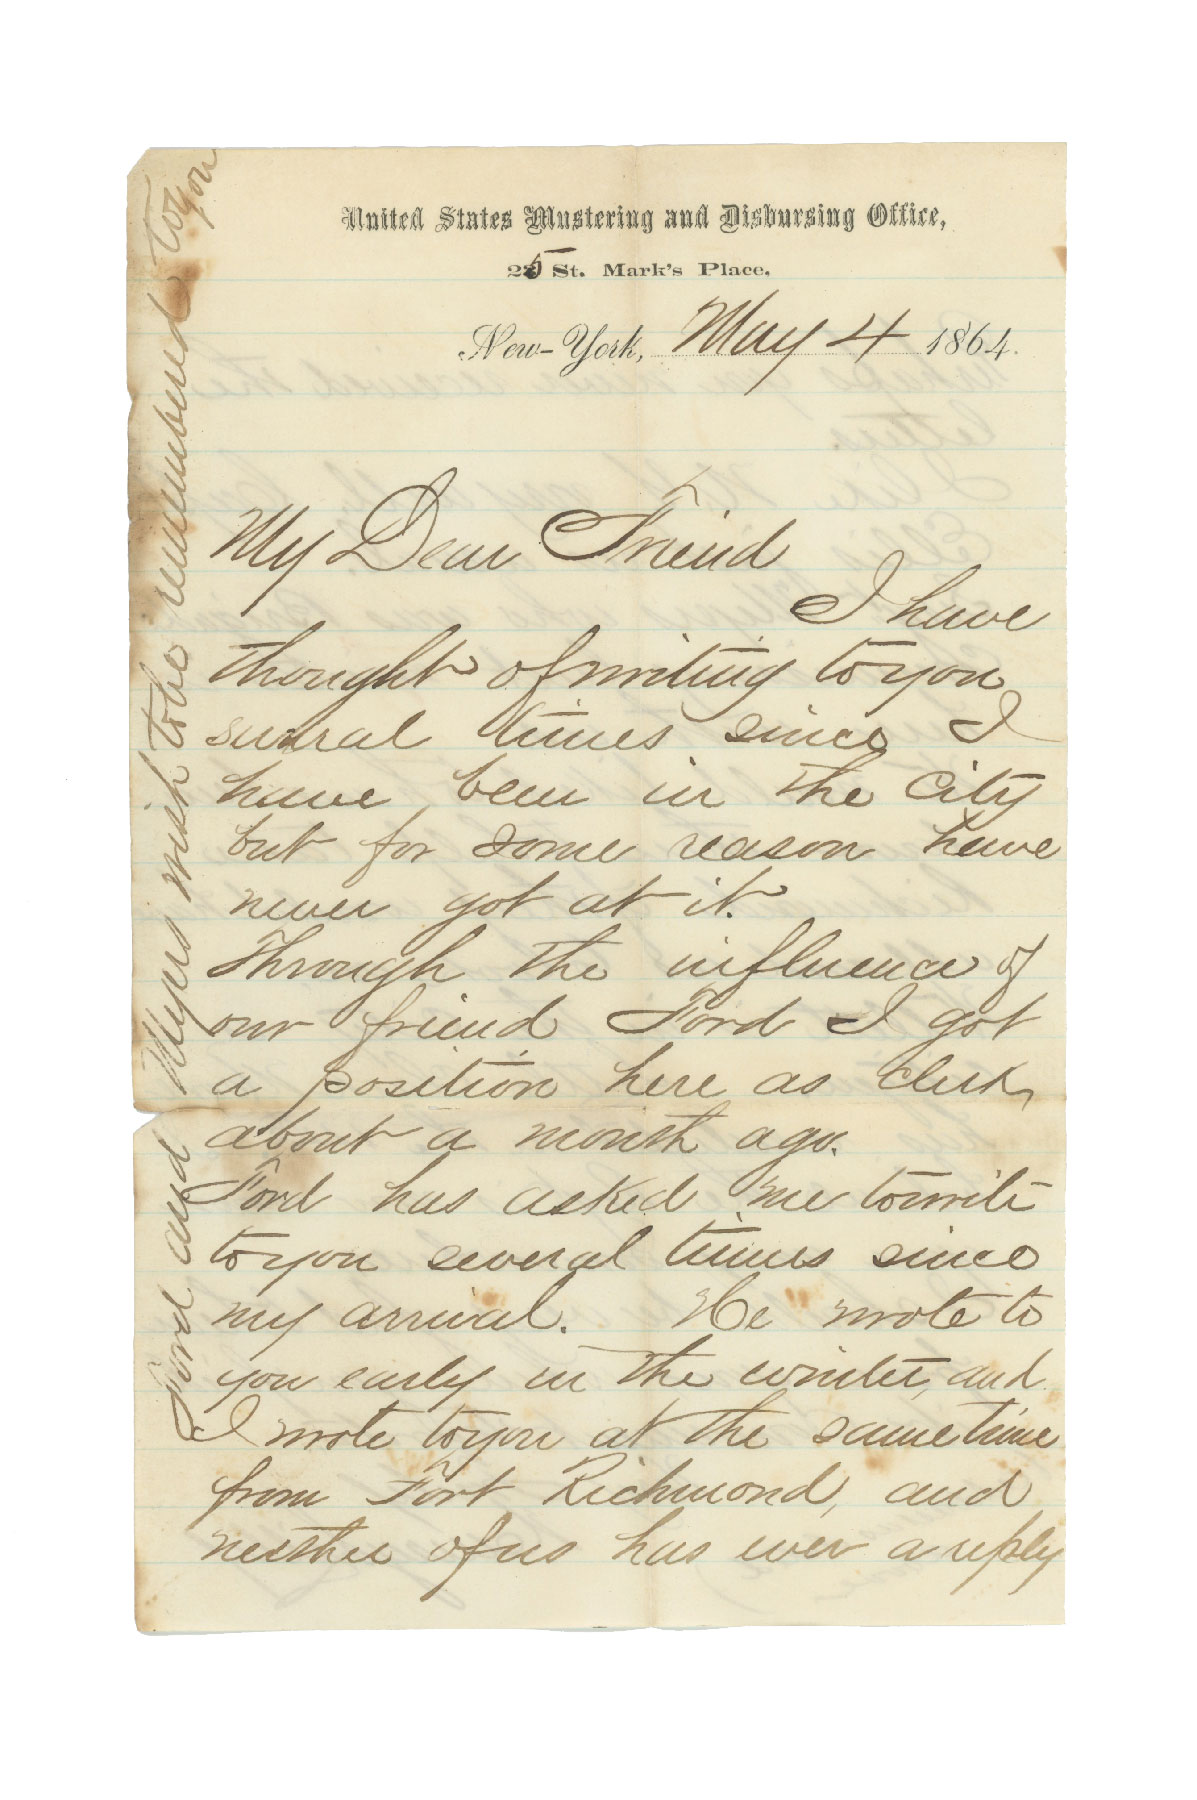 United States Mustering and Disbursing Office,
25 St. Mark's Place.
New-York, May 4 1864.
My Dear Friend
I have
thought of writing to you
several times since I
have been in the City
but for some reason have
never got at it.
Through the influence of
our friend Ford I got
a position here as clerk,
about a month ago.
Ford has asked me to write
to you several times since
my arrival. He wrote to
you early in the winter, and
I wrote to you at the same time
from Fort Richmond, and
neither of us has ever a reply
Ford and Myers wish to be remembered to you
to you